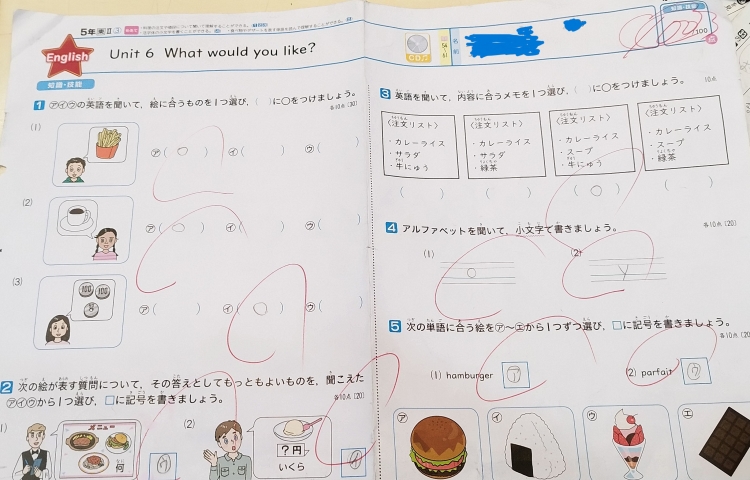 5年 東Ⅱ ③
English
Unit 6 What would you like?
名前
100点
知識・技能
1 アイウの英語を聞いて，絵に合うものを1つ選び，( )に○をつけましょう。
各10点(30)
(1)
ア( ○ ) イ( ) ウ( )
(2)
ア( ○ ) イ( ) ウ( )
(3)
100 100
ア( ) イ( ○ ) ウ( )
2 次の絵が表す質問について，その答えとしてもっともよいものを，聞こえた
アイウから1つ選び，□に記号を書きましょう。
各10点(20)
メニュー
何
ウ
(2)
?円
いくら
イ
知識・技能
3 英語を聞いて，内容に合うメモを1つ選び，( )に○をつけましょう。
10点
〈注文リスト〉
・カレーライス
・サラダ
・牛にゅう
〈注文リスト〉
・カレーライス
・サラダ
・緑茶
〈注文リスト〉
・カレーライス
・スープ
・牛にゅう
〈注文リスト〉
・カレーライス
・スープ
・緑茶
( ) ( ) ( ○ ) ( )
4 アルファベットを聞いて，小文字で書きましょう。
各10点(20)
(1) o
(2) y
5 次の単語に合う絵をア～エから1つずつ選び，□に記号を書きましょう。
各10点(20)
(1) hamburger ア
(2) parfait ウ
ア
イ
ウ
エ